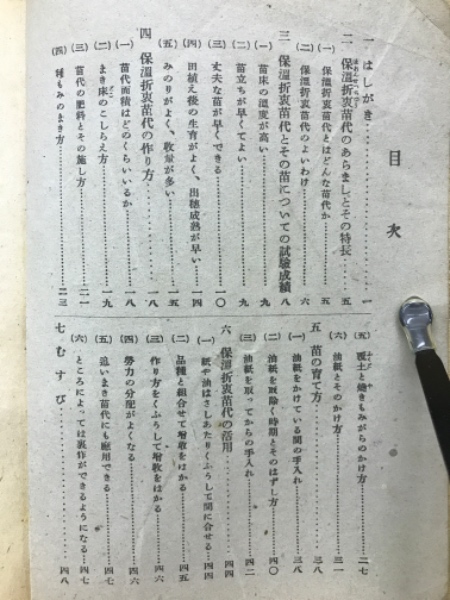 目次
一 はしがき……一
二 保溫折衷苗代のあらましとその特長……五
(一) 保溫折衷苗代とはどんな苗代か……五
(二) 保溫折衷苗代のよいわけ……六
三 保溫折衷苗代とその苗についての試験成績……八
(一) 苗床の溫度が高い……九
(二) 苗立ちが早くてよい……九
(三) 丈夫な苗が早くできる……一〇
(四) 田植え後の生育がよく、出穗成熟が早い……一四
(五) みのりがよく、收量が多い……一五
四 保溫折衷苗代の作り方……一八
(一) 苗代面積はどのくらいいるか……一八
(二) まき床のこしらえ方……一九
(三) 苗代の肥料とその施し方……二一
(四) 種もみのまき方……二三
(五) 覆土と燒きもみがらのかけ方……二七
(六) 油紙とそのかけ方……三一
五 苗の育て方……三八
(一) 油紙をかけている間の手入れ……三八
(二) 油紙を取除く時期とそのはずし方……四〇
(三) 油紙を取ってからの手入れ……四二
六 保溫折衷苗代の活用……四四
(一) 紙や油はさしあたりくふうして間に合せる……四四
(二) 品種と組合せて增收をはかる……四五
(三) 作り方をくふうして增收をはかる……四六
(四) 勞力の分配がよくなる……四六
(五) 追いまき苗代にも應用できる……四七
(六) ところによっては裏作ができるようになる……四七
七 むすび……四八